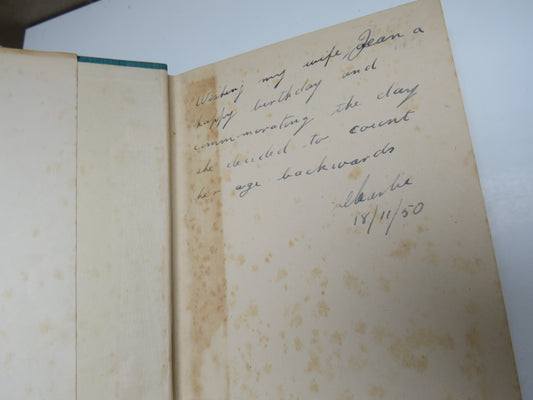 Wishing my wife, Jean a
happy birthday and
commemorating the day
she decided to count
her age backwards
Charlie
18/11/50